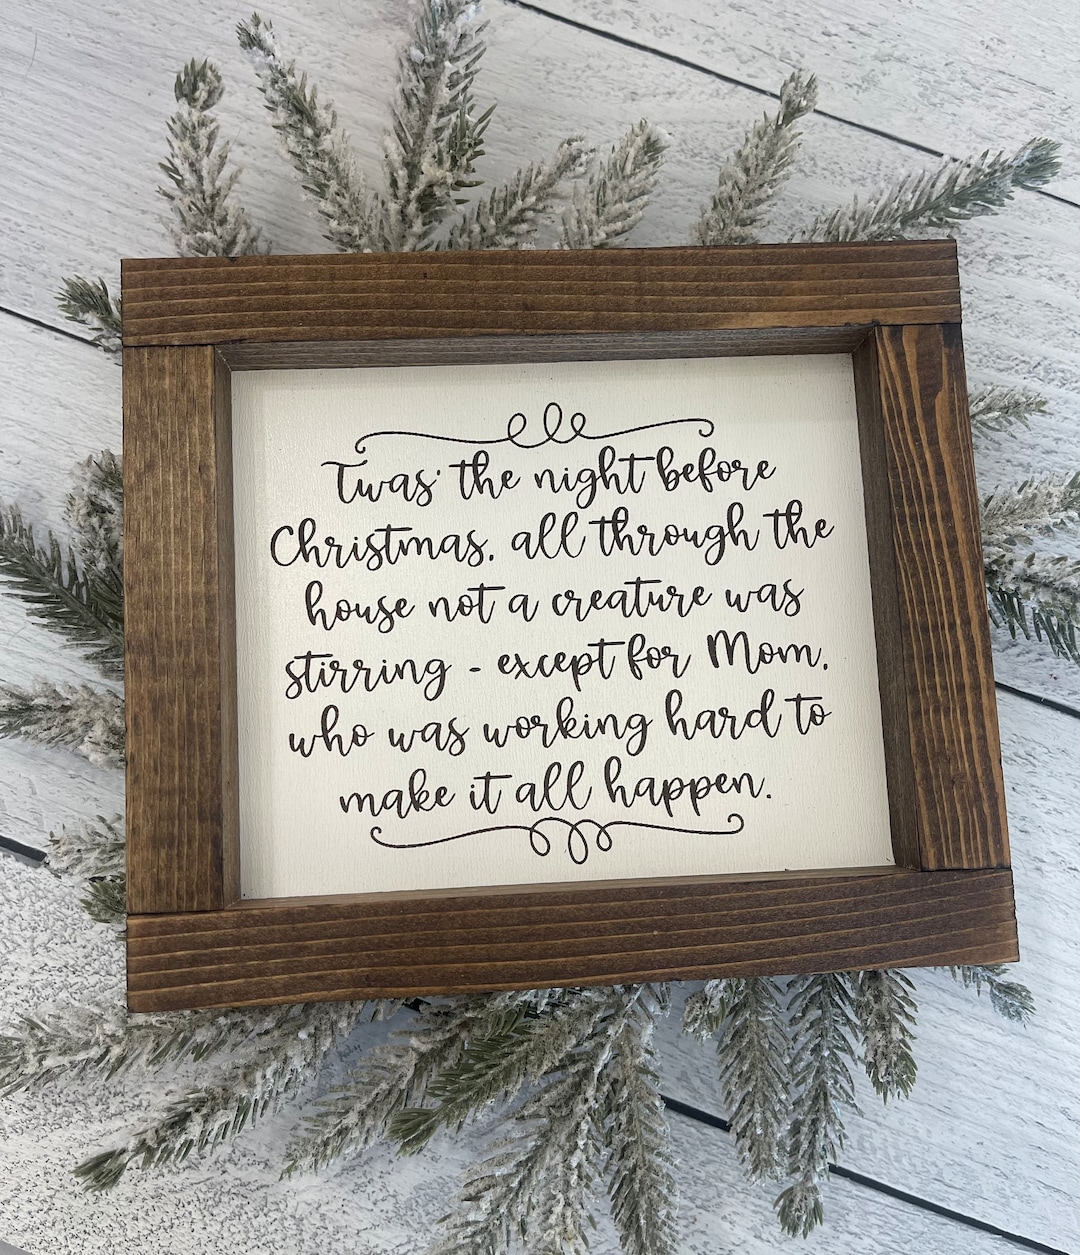 Twas' the night before
Christmas, all through the
house not a creature was
stirring - except for Mom,
who was working hard to
make it all happen.